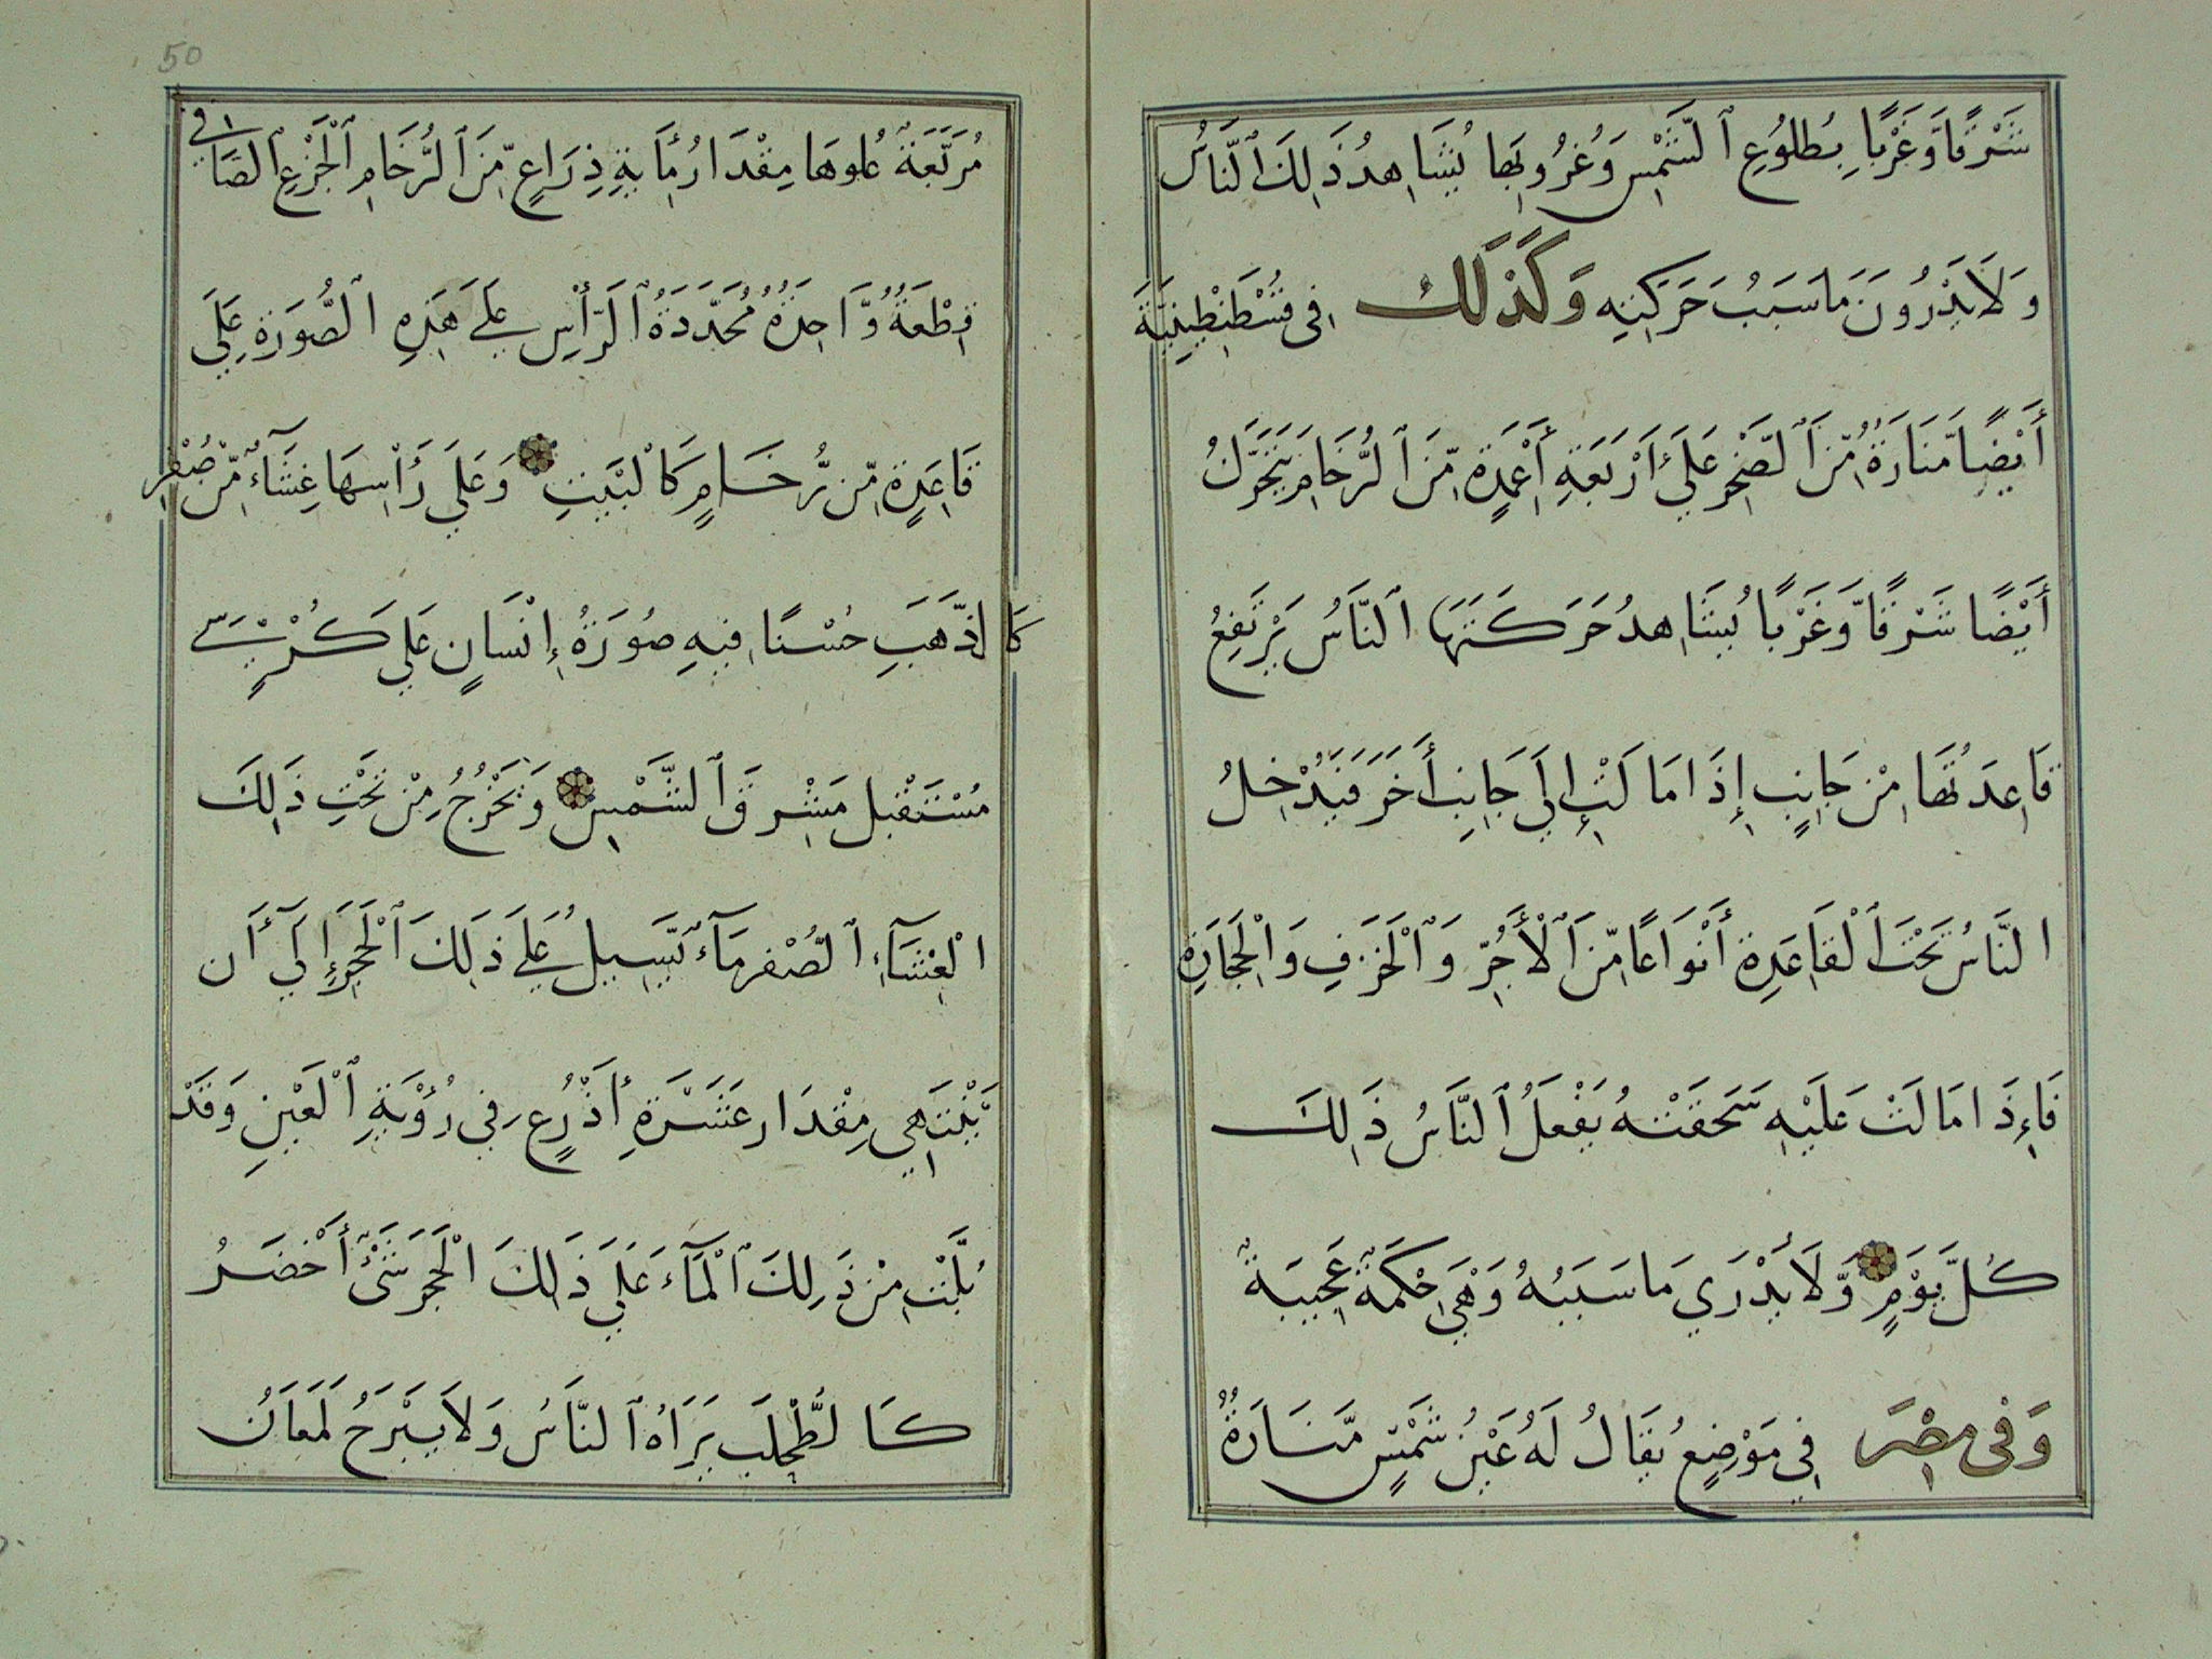 شَرْقًا وَّغَرْبًا بِطُلُوعِ ٱلشَّمْسِ وَغُرُوبِهَا يُشَاهِدُ ذَلِكَ ٱلنَّاسُ
وَلَا يَدْرُونَ مَا سَبَبُ حَرَكَتِهِ وَكَذٰلِكَ فِى قُسْطَنْطِينِيَّةَ
أَيْضًا مَّنَارَةٌ مِّنَ ٱلصَّخْرِ عَلَىٰ أَرْبَعَةِ أَعْمِدَةٍ مِّنَ ٱلرُّخَامِ يَتَحَرَّكُ
أَيْضًا شَرْقًا وَّغَرْبًا يُشَاهِدُ حَرَكَتَهَا ٱلنَّاسُ يَرْتَفِعُ
قَاعِدَتُهَا مِنْ جَانِبٍ إِذَا مَالَتْ إِلَي جَانِبٍ أَخَرَ فَيُدْخِلُ
النَّاسُ تَحْتَ ٱلْقَاعِدَةِ أَنْوَاعًا مِّنَ ٱلْأَجُرِّ وَٱلْخَزَفِ وَالْحِجَارَةِ
فَإِذَا مَالَتْ عَلَيْهِ سَحَقَتْهُ يَفْعَلُ ٱلنَّاسُ ذَلِكَ
كُلَّ يَوْمٍ وَّلَا يَدْرَي مَا سَبَبُهُ وَهْيَ حِكْمَةٌ عَجِيبَةٌ
وَفِى مِصْرَ فِي مَوْضِعٍ يُقَالُ لَهُ عَيْنُ شَمْسٍ مَّنَارَةٌ
50
مُرَبَّعَةٌ عُلوهَا مِقْدَارُ مِأَيةِ ذِرَاعٍ مِّنَ ٱلرُّخَامِ ٱلْجَزْعِ ٱلصَّافِي
قِطْعَةٌ وَّاحِدَةٌ مُحَدَّدَةُ ٱلرَّأْسِ عَلَى هَذِهِ ٱلصُّورَةِ عَلَي
قَاعِدَةٍ مِّن رُّخَامٍ كَالْبَيْتِ وَعَلَي رَأْسِهَا غِشَآءٌ مِّنْ صُفْرٍ
كَالذَّهَبِ حُسْنًا فِيهِ صُورَةُ إِنْسَانٍ عَلَي كُرْسِيٍّ
مُسْتَقْبِل مَشْرِقَ ٱلشَّمْسِ وَيَخْرُجُ مِنْ تَحْتِ ذَلِكَ
الْغِشَآءِ ٱلصُّفْرِ مَآءٌ يَّسِيلُ عَلَى ذَلِكَ ٱلْحَجَرِ إِلَي أَن
يَّنْتَهِي مِقْدَار عَشَرَةِ أَذْرُعٍ فِي رُؤْيَةِ ٱلْعَيْنِ وَقَدْ
نَبَتَ مِنْ ذَلِكَ ٱلْمَآءِ عَلَي ذَلِكَ الْحَجَرِ شَىْءٌ أَخْضَرُ
كَالطُّحْلَبِ يَرَاهُ ٱلنَّاسُ وَلَا يَبْرَحُ لَمَعَانُ